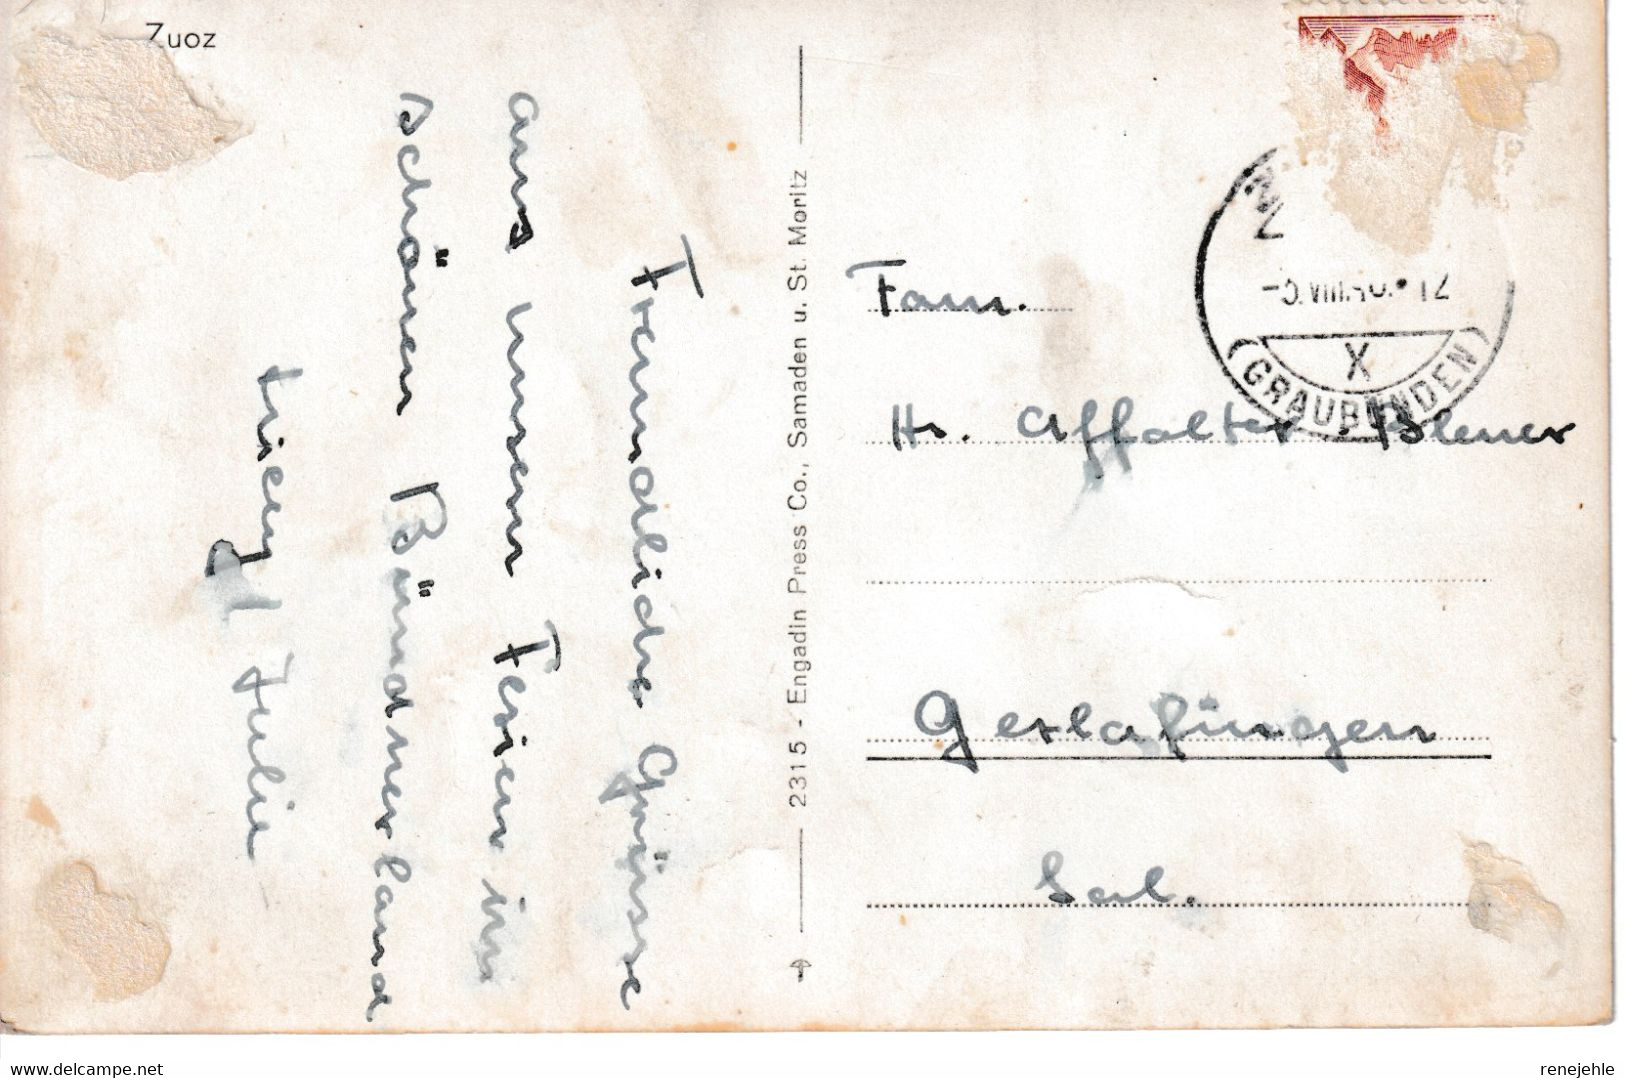 Zuoz
Freundliche Grüsse
aus unsern Ferien im
schönen Bündnerland
Julie
2315 - Engadin Press Co., Samaden u. St. Moritz
X
(GRAUBÜNDEN)
Fam.
Hr. Affolter
Gerlafingen
Sol.
Delcampe.net
renejehle